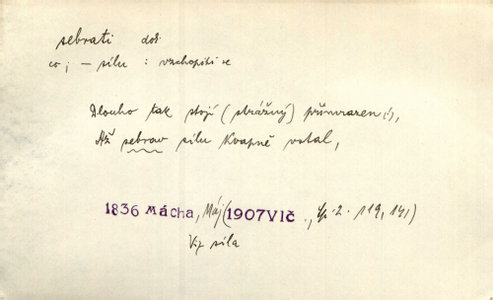 sebrati dok
co; – sílu : vzchopiti se
Dlouho tak stojí (strážný) přimrazen (!),
Až sebrav sílu kvapně vstal,
1836 Mácha, Máj (1907 Vlč ., 2. 119, 141)
Viz síla